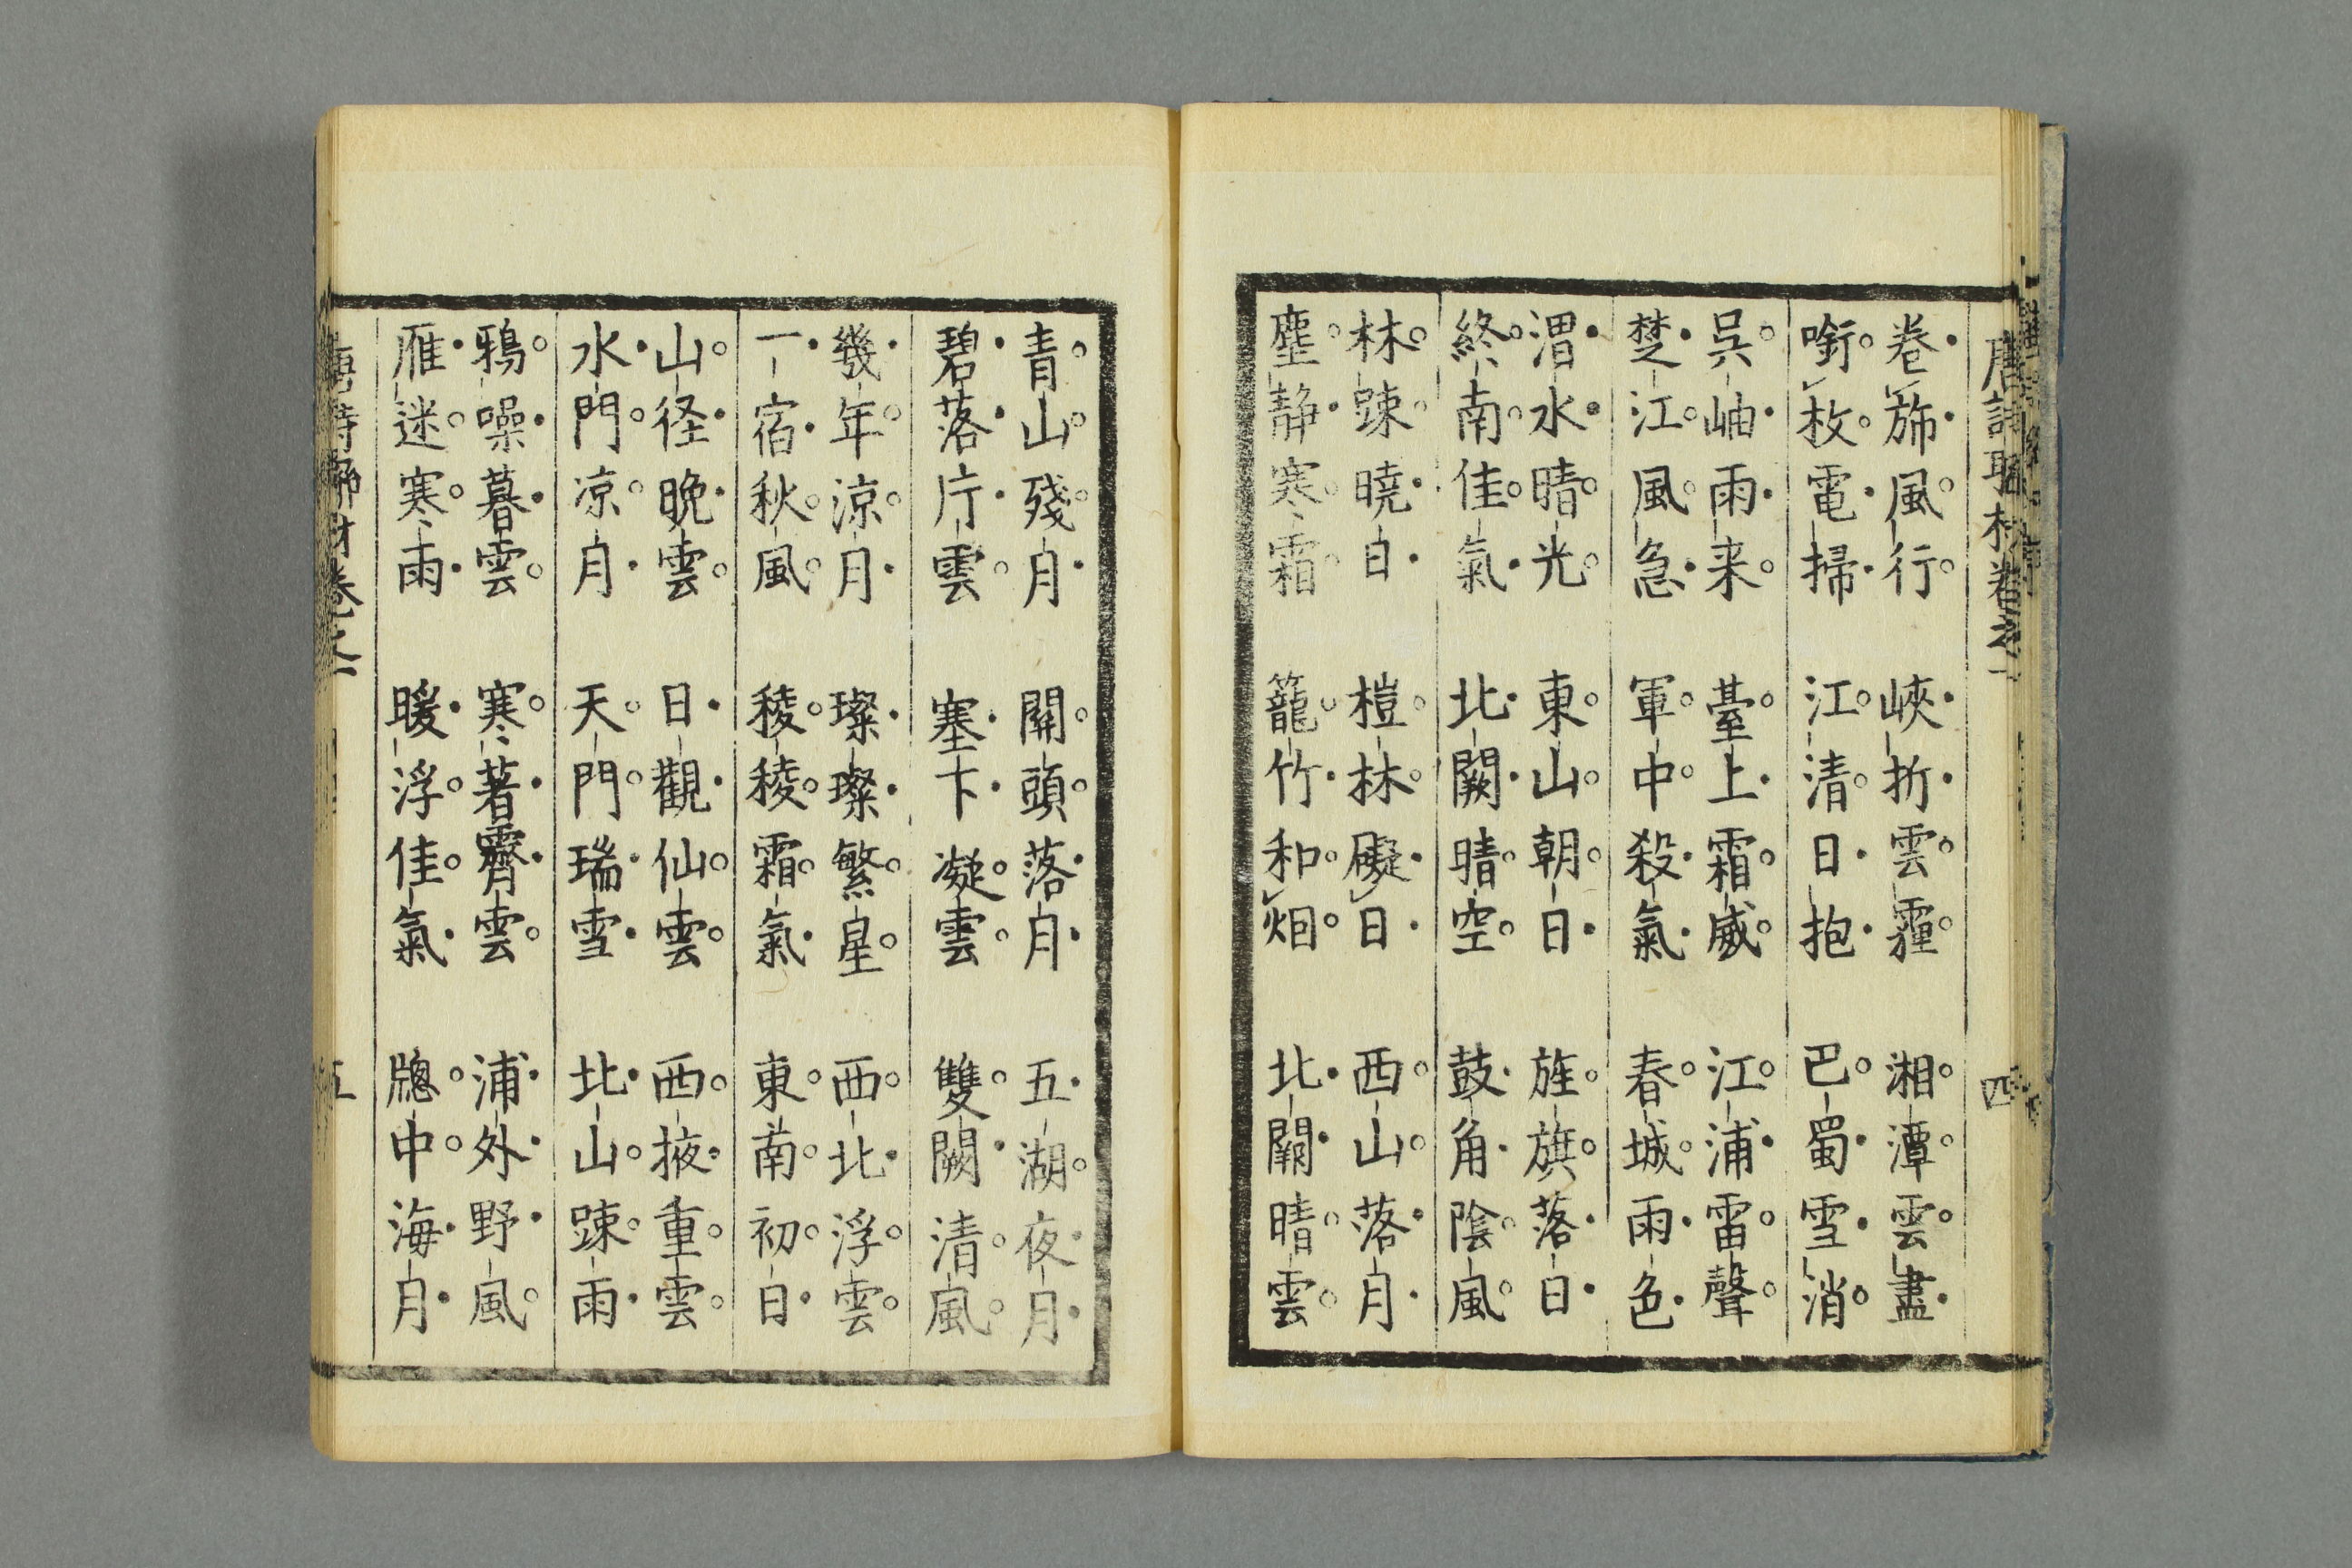 唐詩聯材卷之一 四
卷旆風行 峽折雲霾 湘潭雲盡
銜枚電掃 江清日抱 巴蜀雪消
呉岫雨来 臺上霜威 江浦雷聲
楚江風急 軍中殺氣 春城雨色
渭水晴光 東山朝日 旌旗落日
終南佳氣 北闕晴空 鼓角陰風
林踈曉日 榿林礙日 西山落月
塵静寒霜 籠竹和烟 北闕晴雲
青山殘月 關頭落月 五湖夜月
碧落片雲 塞下凝雲 雙闕清風
幾年涼月 璨璨繁星 西北浮雲
一宿秋風 稜稜霜氣 東南初日
山径晩雲 日觀仙雲 西掖重雲
水門凉月 天門瑞雪 北山踈雨
鴉噪暮雲 寒著霽雲 浦外野風
雁迷寒雨 暖浮佳氣 牕中海月
唐詩聯材卷之一 五